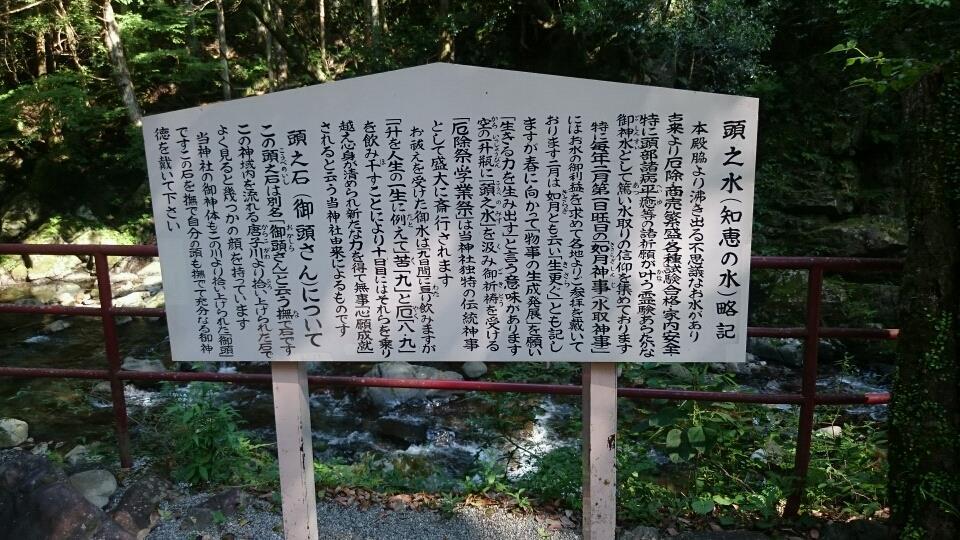 頭之水（知恵の水）略記
本殿脇より沸き出る不思議なお水があり
古来より厄除 商売繁盛 各種試験合格 家内安全
特に頭部諸病平癒等の諸祈願が叶う霊験あらたかな
御神水として篤い水取りの信仰を集めております
特に毎年二月第一日曜日の如月神事「水取神事」
にはお水の御利益を求めて各地より参拝を戴いて
おります二月は如月とも云い「生更ぐ」とも記し
ますが春に向かて物事の「生成発展」を願い
「生きる力を生み出す」と言う意味があります
空の一升瓶に「頭之水」を汲み御祈祷を受ける
「厄除祭・学業祭」は当神社独特の伝統神事
として盛大に斎行されます
お祓を受けた御水は九日間に亘り飲みますが
「一升を人生の一生」に例えて「苦」「九」と「厄」「八九」
を飲み干すことにより十日目にはそれらを乗り
越え心身が清められ新たな力を得て無事心願成就
されると云う当神社由来によるものです
頭之石（御頭さん）について
この頭之石は別名「御頭さん」と云う撫で石です
この神域内を流れる唐子川より拾い上げられた石で
よく見ると幾つかの顔を持っています
当神社の御神体もこの川より拾い上げられた御頭
ですこの石を撫で自分の頭も撫でて充分なる御神
徳を戴いて下さい